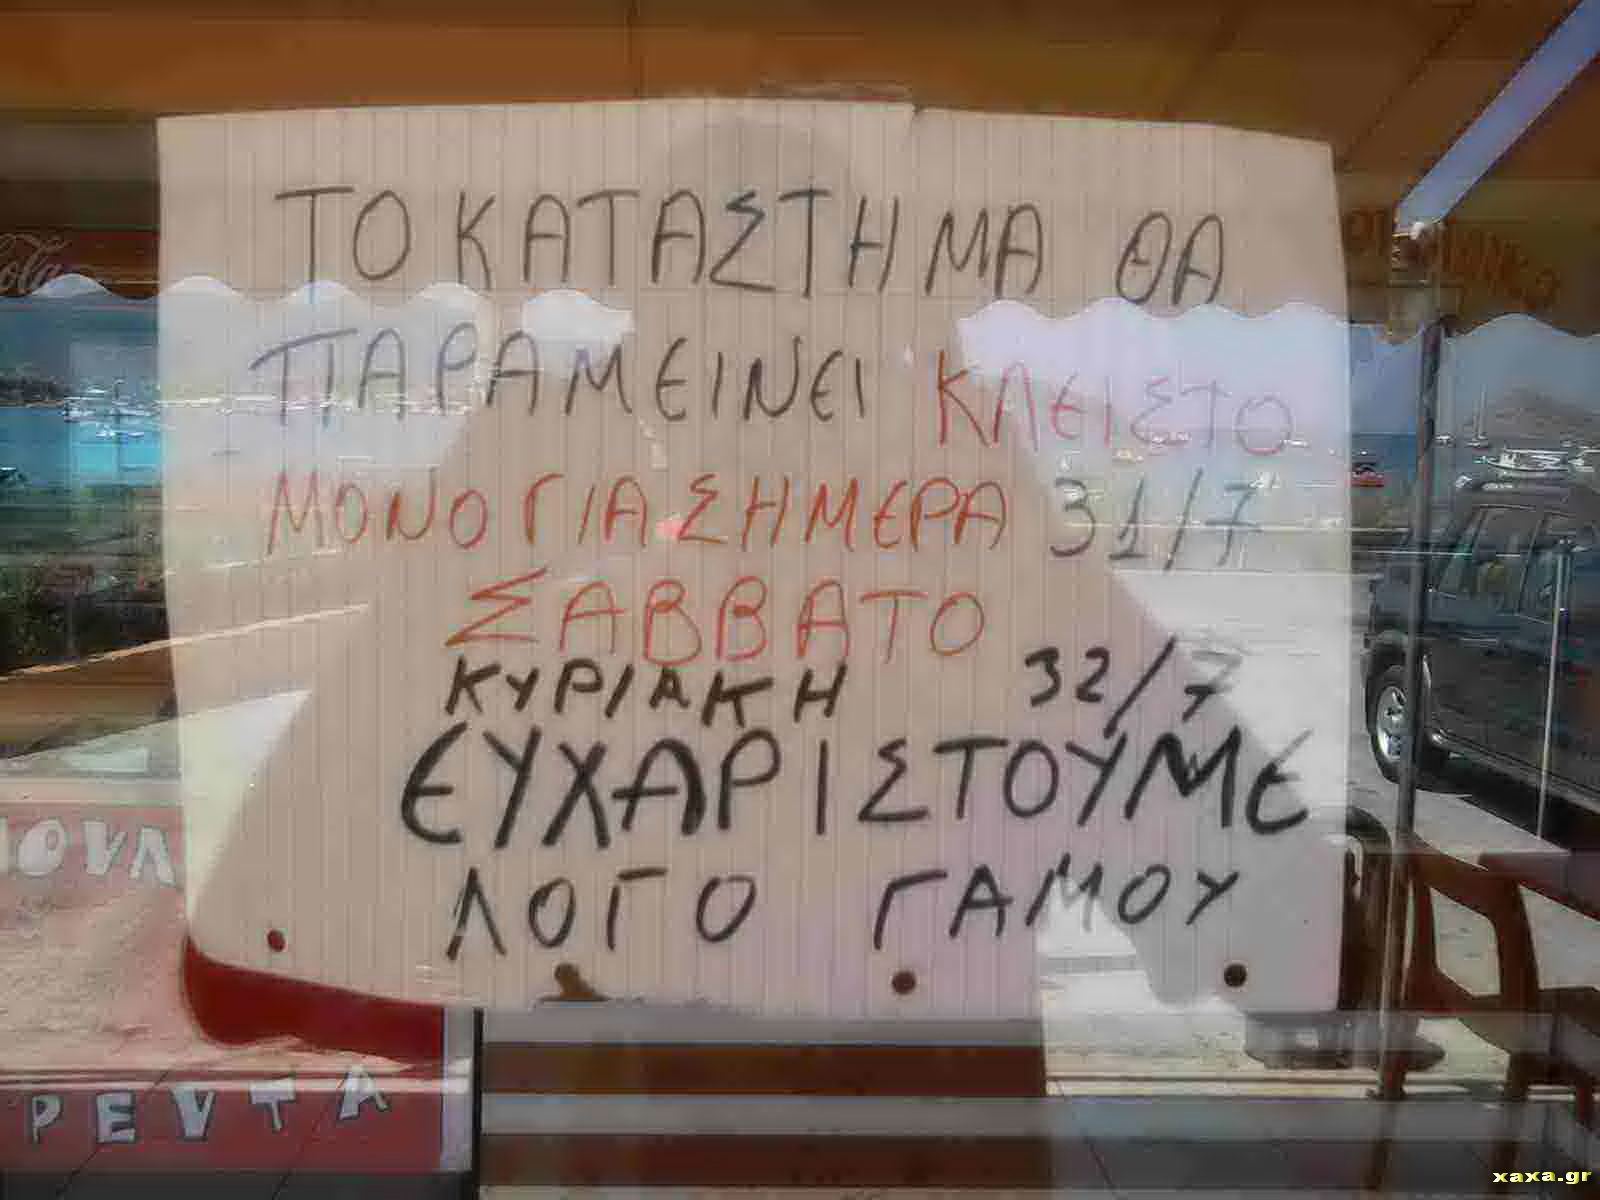 ΤΟ ΚΑΤΑΣΤΗΜΑ ΘΑ
ΠΑΡΑΜΕΙΝΕΙ ΚΛΕΙΣΤΟ
ΜΟΝΟ ΓΙΑ ΣΗΜΕΡΑ 31/7
ΣΑΒΒΑΤΟ
ΚΥΡΙΑΚΗ 32/7
ΕΥΧΑΡΙΣΤΟΥΜΕ
ΛΟΓΟ ΓΑΜΟΥ
xaxa.gr